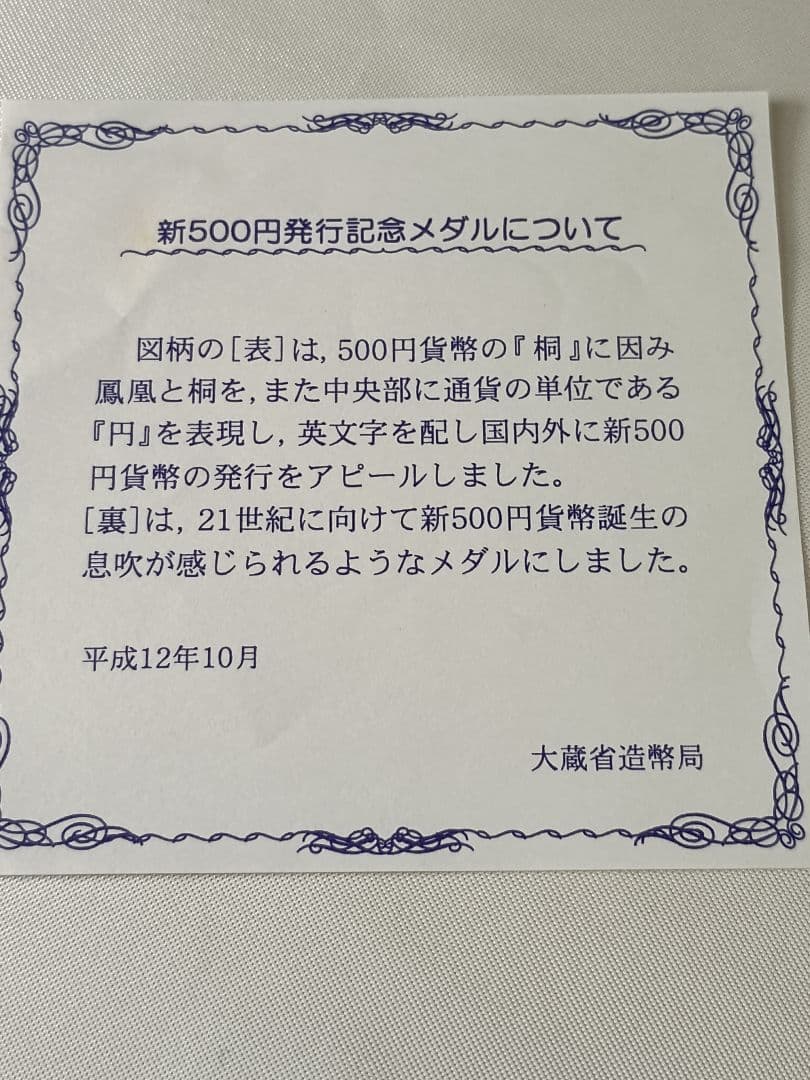 新500円発行記念メダルについて
図柄の［表］は, 500円貨幣の『桐』に因み
鳳凰と桐を, また中央部に通貨の単位である
『円』を表現し, 英文字を配し国内外に新500
円貨幣の発行をアピールしました。
［裏］は, 21世紀に向けて新500円貨幣誕生の
息吹が感じられるようなメダルにしました。
平成12年10月
大蔵省造幣局